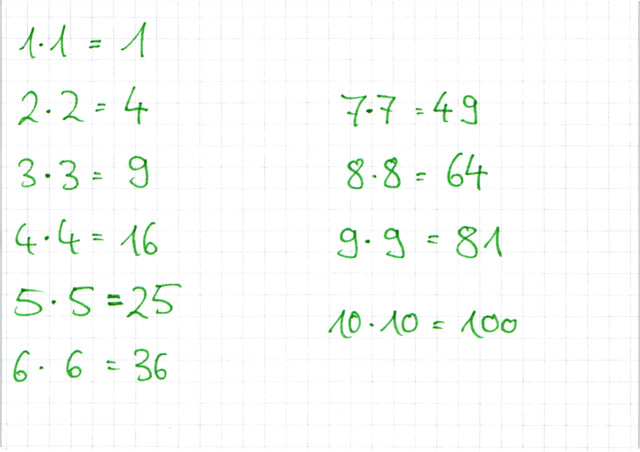 1·1 = 1
2·2 = 4
3·3 = 9
4·4 = 16
5·5 = 25
6·6 = 36
7·7 = 49
8·8 = 64
9·9 = 81
10·10 = 100